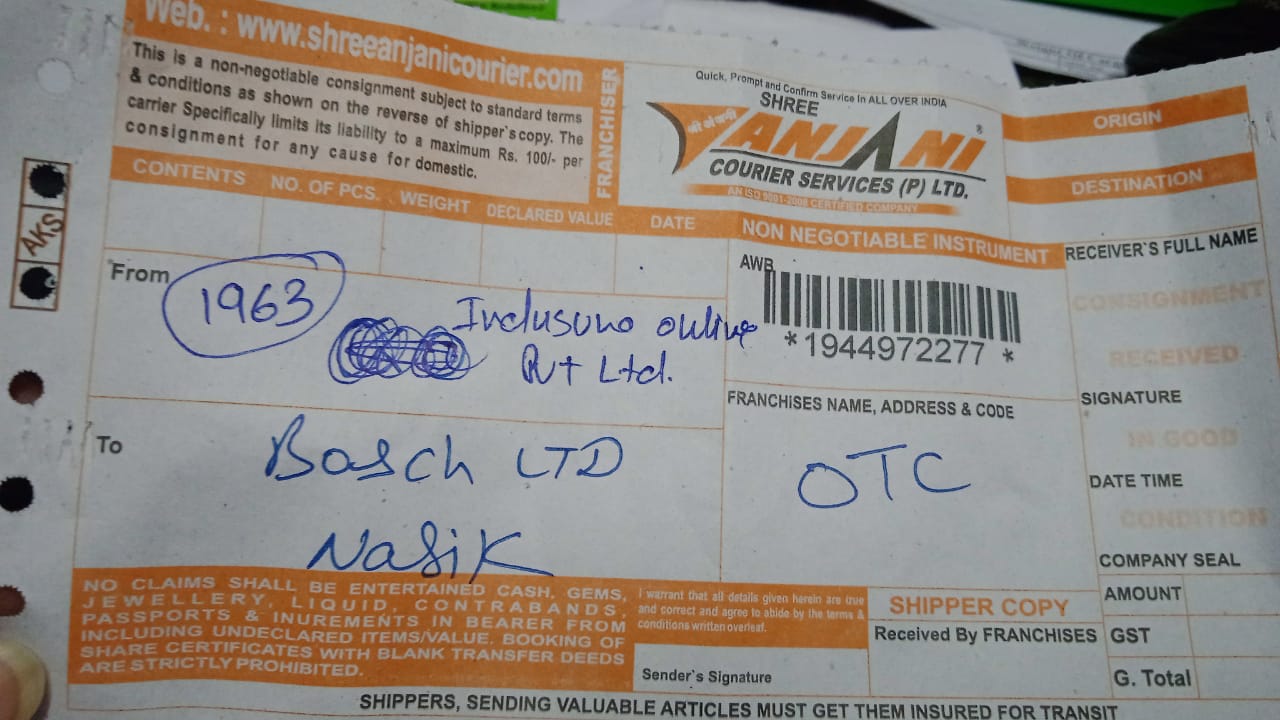 Web. : www.shreeanjanicourier.com
This is a non-negotiable consignment subject to standard terms
& conditions as shown on the reverse of shipper`s copy. The
carrier Specifically limits its liability to a maximum Rs. 100/- per
consignment for any cause for domestic.
FRANCHISER
Quick, Prompt and Confirm Service In ALL OVER INDIA
SHREE
श्री अंजनी
ANJANI®
COURIER SERVICES (P) LTD.
AN ISO 9001-2008 CERTIFIED COMPANY
ORIGIN
DESTINATION
CONTENTS NO. OF PCS. WEIGHT DECLARED VALUE DATE
NON NEGOTIABLE INSTRUMENT
RECEIVER`S FULL NAME
AKS
From
1963
Indusuno online
Pvt Ltd.
AWB
*1944972277*
CONSIGNMENT
RECEIVED
SIGNATURE
IN GOOD
DATE TIME
CONDITION
COMPANY SEAL
To
Bosch LTD
Nasik
FRANCHISES NAME, ADDRESS & CODE
OTC
NO CLAIMS SHALL BE ENTERTAINED CASH, GEMS,
JEWELLERY, LIQUID, CONTRABANDS,
PASSPORTS & INUREMENTS IN BEARER FROM
INCLUDING UNDECLARED ITEMS/VALUE. BOOKING OF
SHARE CERTIFICATES WITH BLANK TRANSFER DEEDS
ARE STRICTLY PROHIBITED.
I warrant that all details given herein are true
and correct and agree to abide by the terms &
conditions written overleaf.
Sender`s Signature
SHIPPER COPY
Received By FRANCHISES
AMOUNT
GST
G. Total
SHIPPERS, SENDING VALUABLE ARTICLES MUST GET THEM INSURED FOR TRANSIT